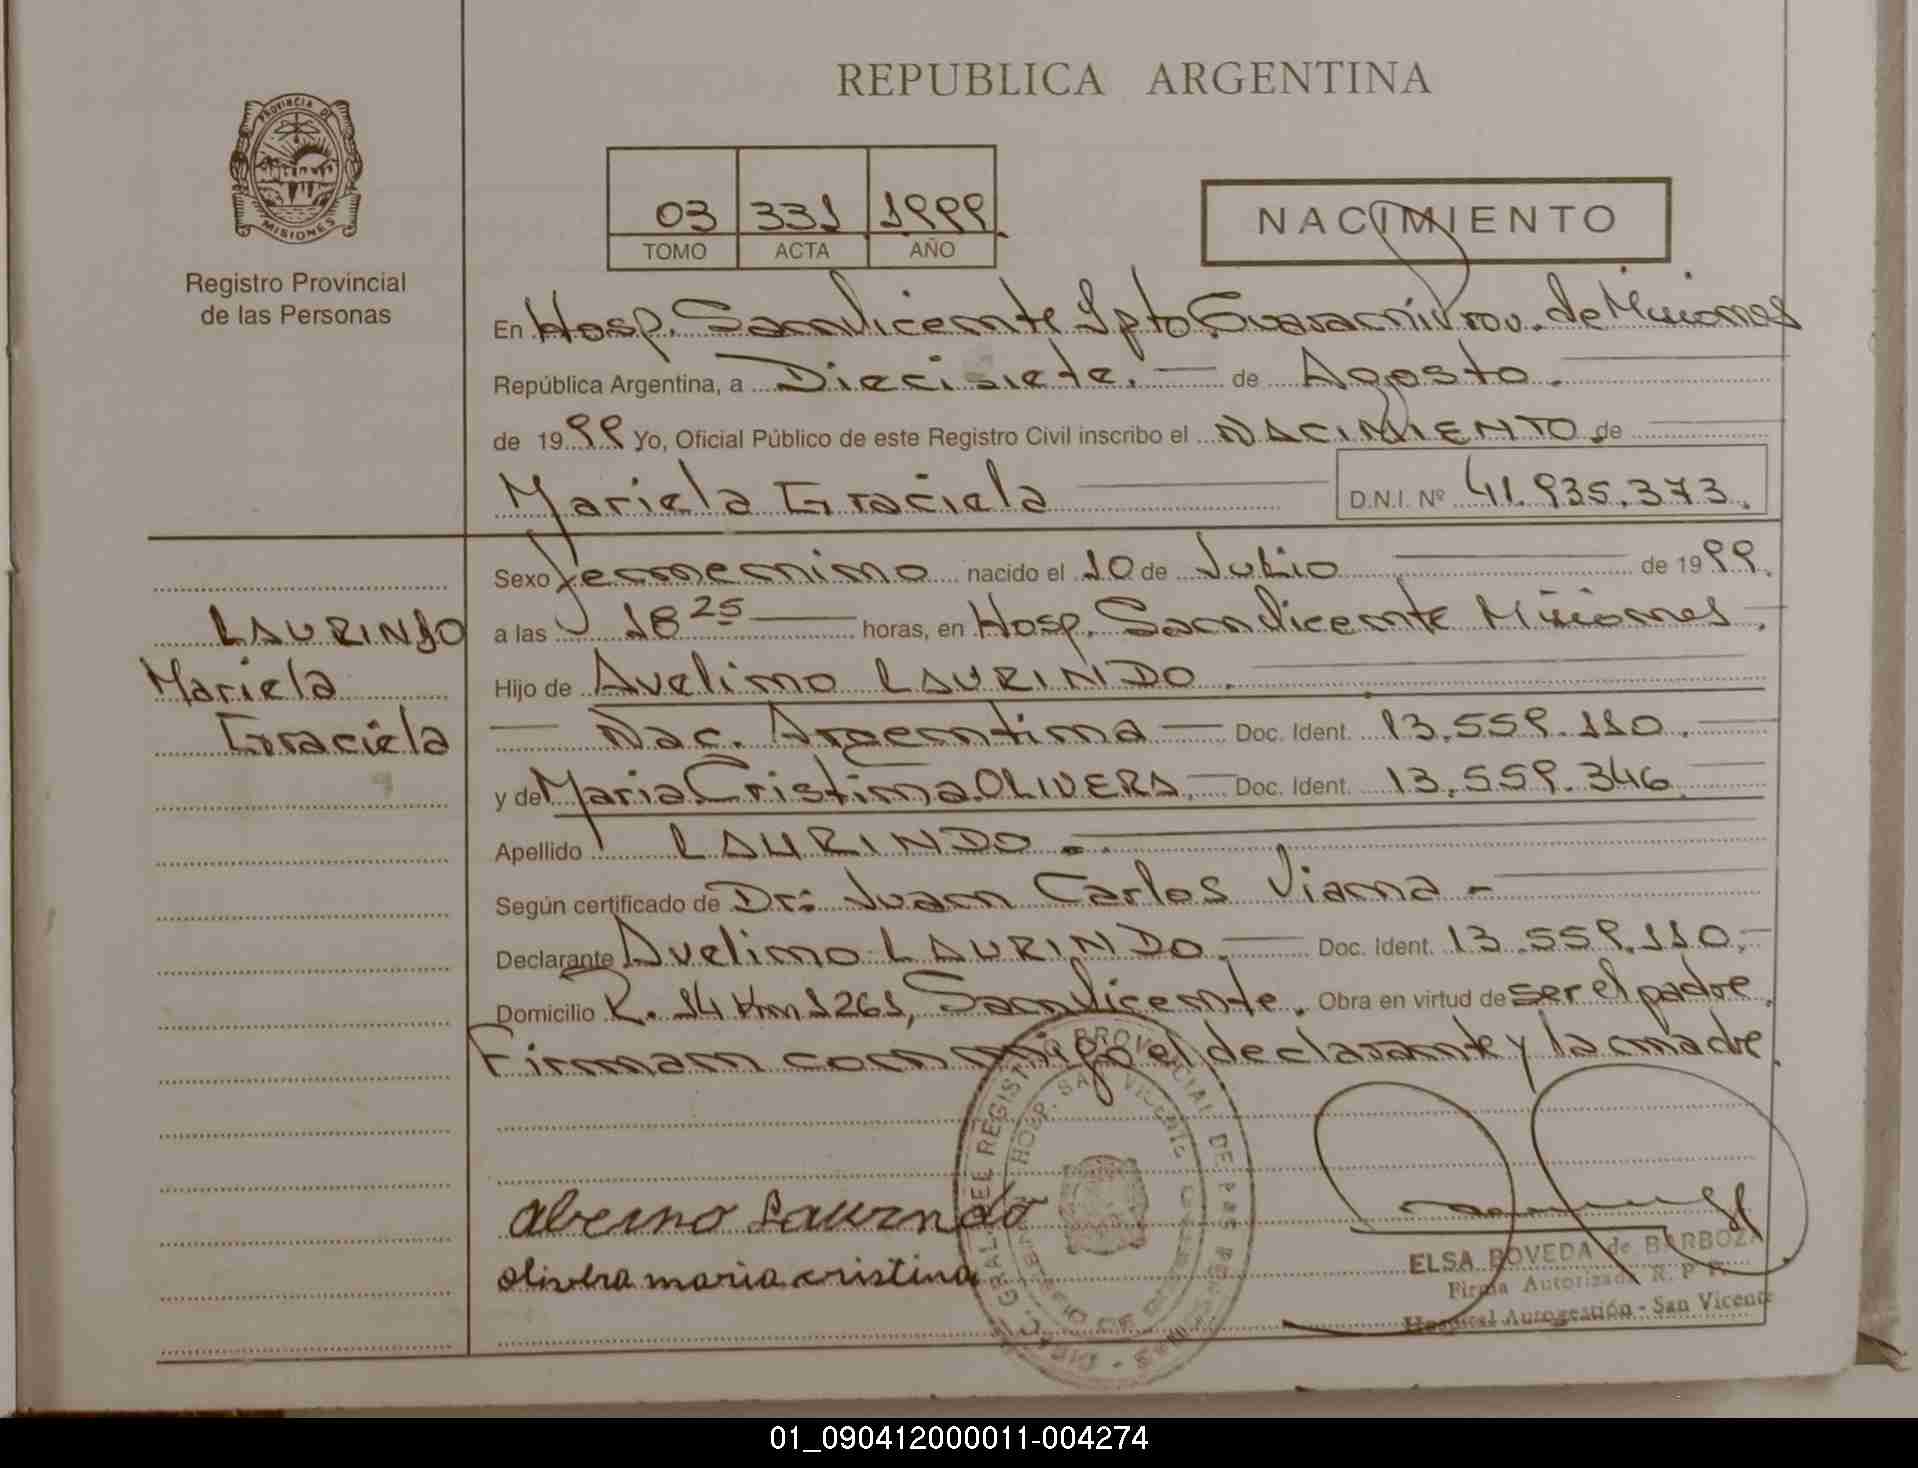 REPUBLICA ARGENTINA
PROVINCIA DE
MISIONES
Registro Provincial
de las Personas
03 331 1999
TOMO ACTA AÑO
NACIMIENTO
En Hosp. San Vicente Dpto Guaraní Prov. de Misiones
República Argentina, a Diecisiete. de Agosto.
de 1999 Yo, Oficial Público de este Registro Civil inscribo el NACIMIENTO de
Mariela Graciela D.N.I. Nº 41.935.373.
Sexo femenino nacido el 10 de Julio de 1999.
a las 18 25 horas, en Hosp. San Vicente Misiones.
Hijo de Avelino LAURINDO.
Nac. Argentina Doc. Ident. 13.559.110.
y de Maria Cristina OLIVERA, Doc. Ident. 13.559.346
Apellido LAURINDO.
Según certificado de Dr: Juan Carlos Viana -
Declarante Avelino LAURINDO. Doc. Ident. 13.559.110.
Domicilio R. 14 Km 1261, San Vicente. Obra en virtud de ser el padre.
Firman conmigo el declarante y la madre.
LAURINDO
Mariela
Graciela
Laurindo
olivera maria cristina
HOSP. SAN VICENTE
ELSA BOVEDA de BARBOZA
Firma Autorizada R. P. P.
Hospital Autogestión - San Vicente
01_090412000011-004274